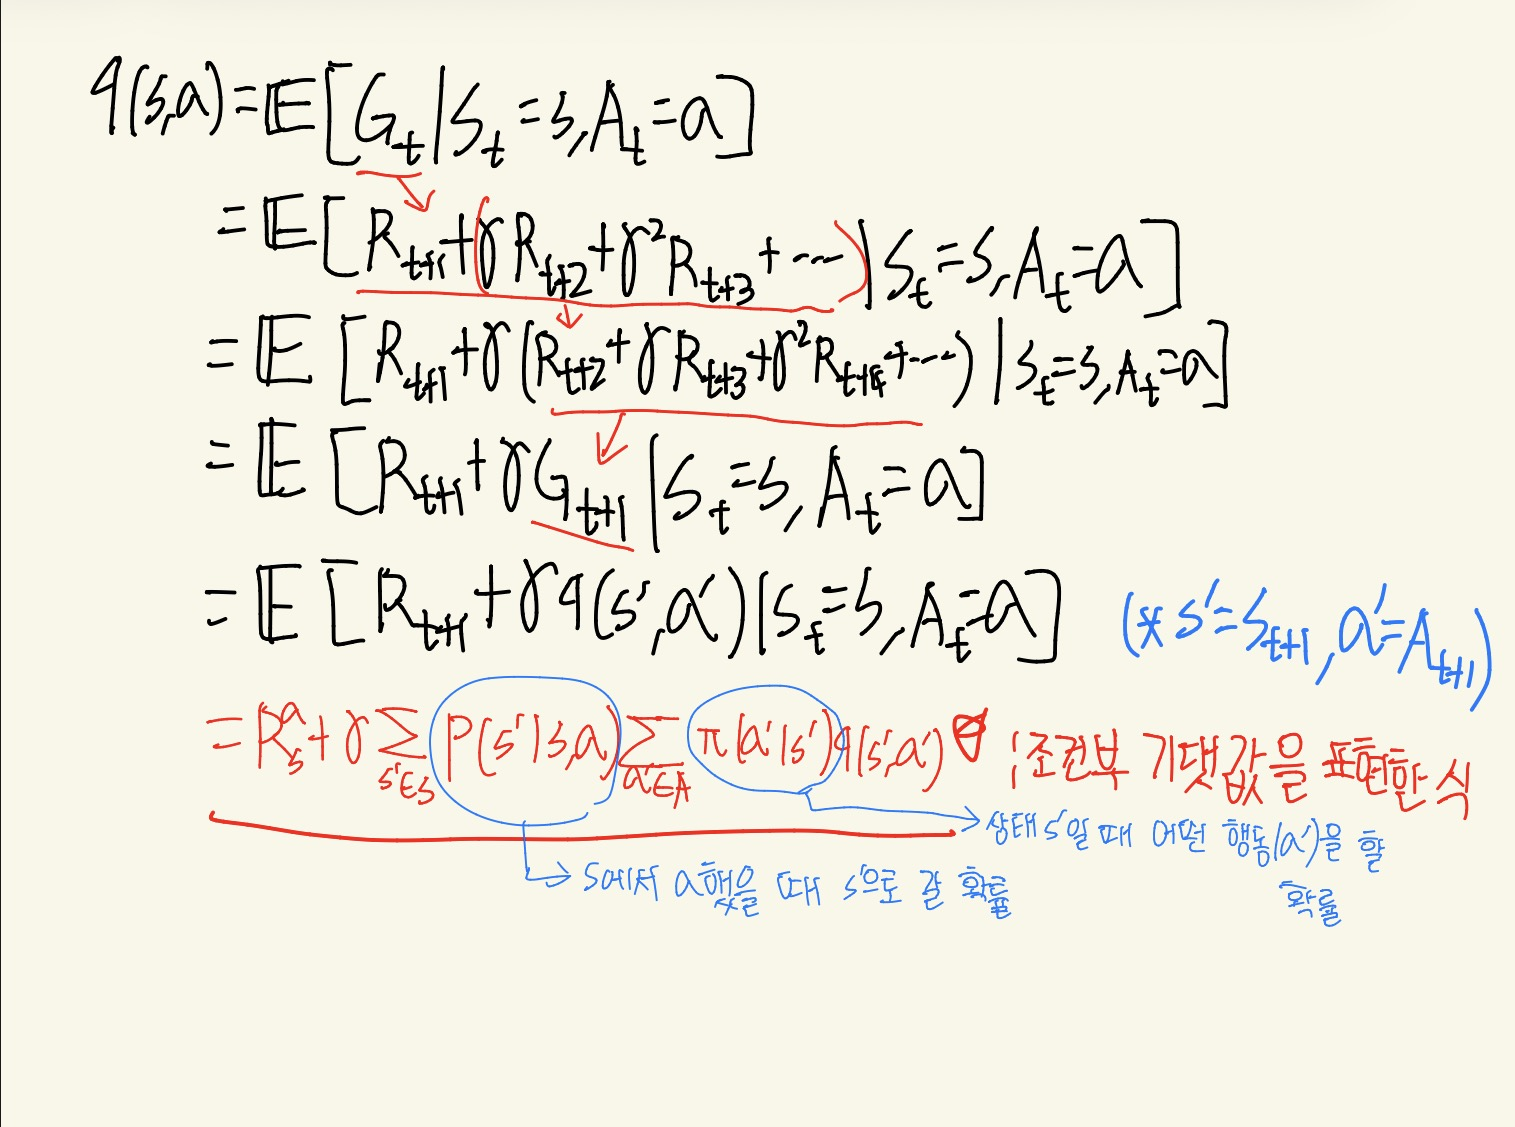 q(s,a) = 𝔼[G_t | S_t = s, A_t = a]
= 𝔼[R_{t+1} + (γR_{t+2} + γ²R_{t+3} + ⋯) | S_t = s, A_t = a]
= 𝔼[R_{t+1} + γ(R_{t+2} + γR_{t+3} + γ²R_{t+4} + ⋯) | S_t = s, A_t = a]
= 𝔼[R_{t+1} + γG_{t+1} | S_t = s, A_t = a]
= 𝔼[R_{t+1} + γq(s′,a′) | S_t = s, A_t = a] (* s′ = S_{t+1}, a′ = A_{t+1})
= R_s^a + γ∑_{s′∈S} P(s′|s,a) ∑_{a′∈A} π(a′|s′) q(s′,a′) ; 조건부 기댓값을 표현한 식
상태 s′일 때 어떤 행동(a′)을 할
확률
s에서 a했을 때 s′으로 갈 확률